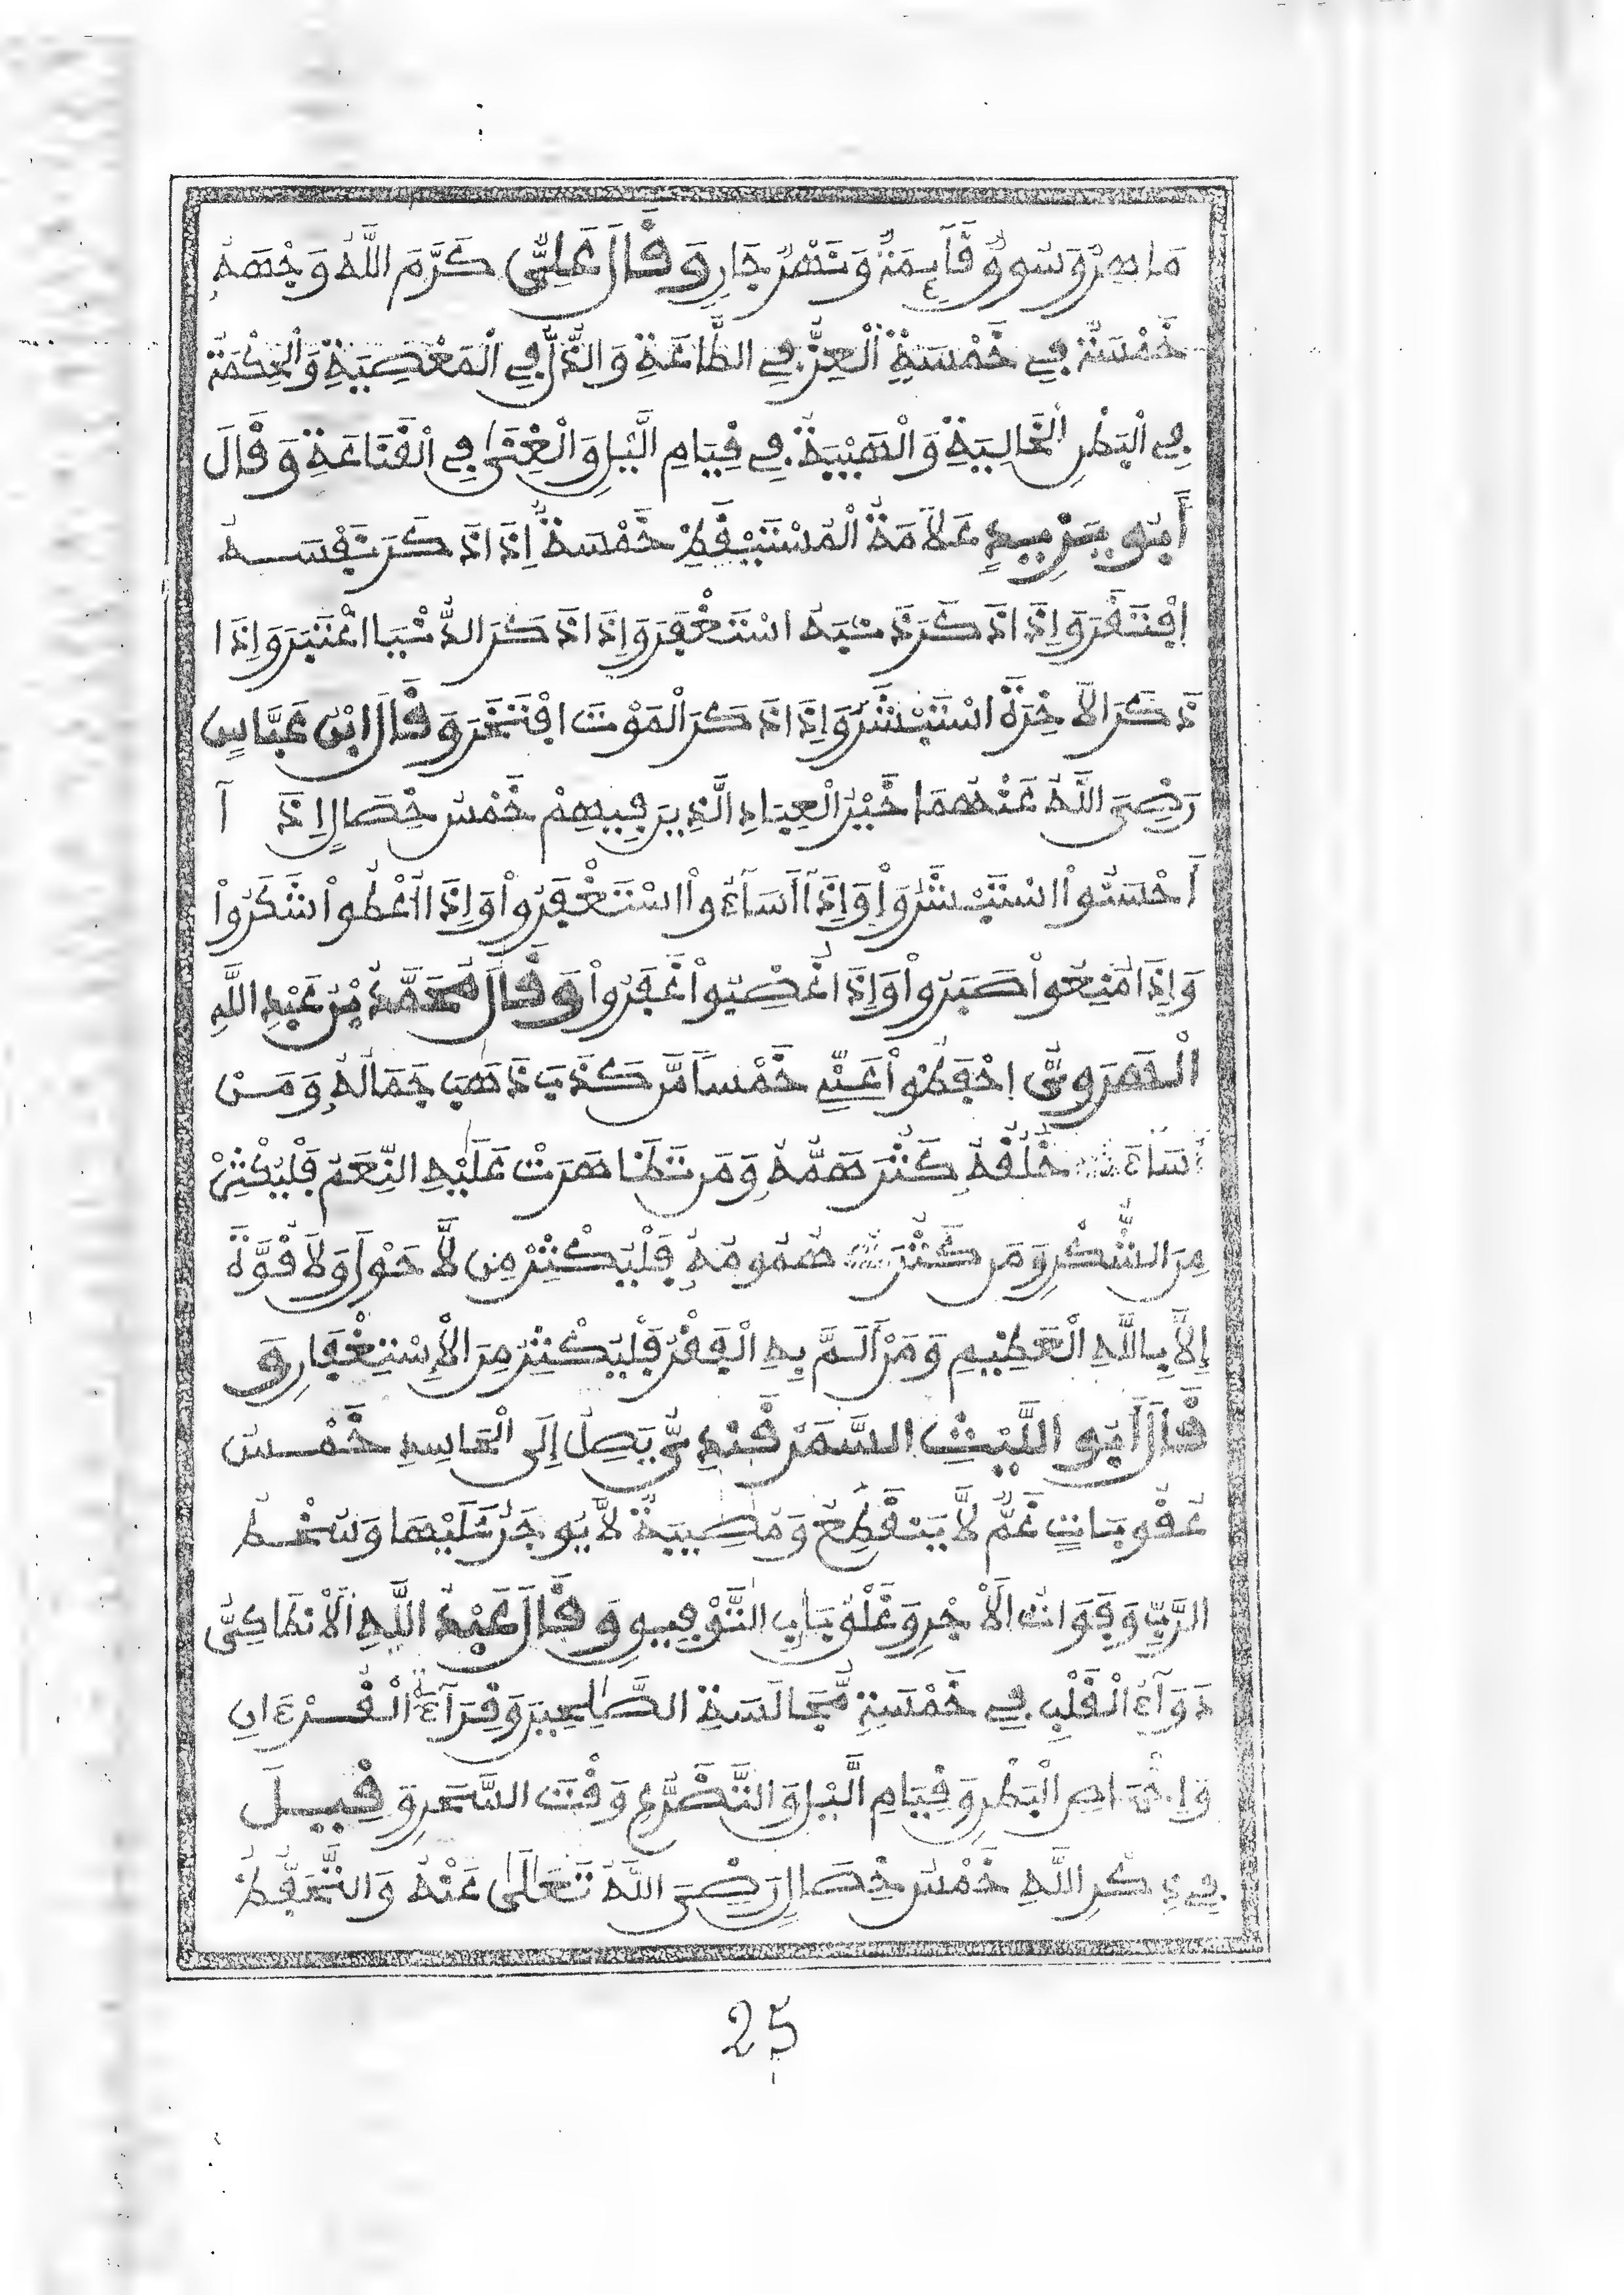 مَاهِرٌ وَسُووٌ قَآيِمَةٌ وَنَهْرٌ جَارٍ وَقَالَ عَلِيٌّ كَرَّمَ اللَّهُ وَجْهَهُ
خَمْسَةٌ فِي خَمْسَةٍ اَلْعِزُّ فِي الطَّاعَةِ وَالذُّلُّ فِي الْمَعْصِيَةِ وَالْحِكْمَةُ
فِي الْبَطْنِ الْخَالِيَةِ وَالْهَيْبَةُ فِي قِيَامِ الَّيْلِ وَالْغِنَى فِي الْقَنَاعَةِ وَقَالَ
أَبُو يَزِيدٍ عَلَامَةُ الْمُسْتَيْقَظِ خَمْسَةٌ إِذَا ذَكَرَ نَفْسَهُ
اِفْتَقَرَ وَإِذَا ذَكَرَ ذَنْبَهُ اسْتَغْفَرَ وَإِذَا ذَكَرَ الدُّنْيَا اعْتَبَرَ وَإِذَا
ذَكَرَ الْآخِرَةَ اسْتَبْشَرَ وَإِذَا ذَكَرَ الْمَوْتَ افْتَخَرَ وَقَالَ ابْنُ عَبَّاسٍ
رَضِيَ اللَّهُ عَنْهُمَا خَيْرُ الْعِبَادِ الَّذِينَ فِيهِمْ خَمْسُ خِصَالٍ إِذَآ
أَحْسَنُواْ اسْتَبْشَرُواْ وَإِذَآ أَسَآءُواْ اسْتَغْفَرُواْ وَإِذَا أُعْطُواْ شَكَرُواْ
وَإِذَا مُنِعُواْ صَبَرُواْ وَإِذَا أُغْضِبُواْ غَفَرُواْ وَقَالَ مُحَمَّدُ بْنُ عَبْدِ اللَّهِ
الْهَرَوِيُّ اِحْفَظُواْ عَنِّي خَمْساً مَن كَذَبَ ذَهَبَ جَمَالُهُ وَمَنْ
أَسَآءَ خُلُقَهُ كَثُرَ هَمُّهُ وَمَن تَظَاهَرَتْ عَلَيْهِ النِّعَمُ فَلْيُكْثِرْ
مِنَ الشُّكْرِ وَمَن كَثُرَتْ هُمُومُهُ فَلْيُكْثِرْ مِن لَّا حَوْلَ وَلَا قُوَّةَ
إِلَّا بِاللَّهِ الْعَظِيمِ وَمَنْ أَلَمَّ بِهِ الْفَقْرُ فَلْيُكْثِرْ مِنَ الْإِسْتِغْفَارِ وَ
قَالَ أَبُو اللَّيْثِ السَّمَرْقَنْدِيُّ يَصِلُ إِلَى الْحَاسِدِ خَمْسُ
عُقُوبَاتٍ غَمٌّ لَا يَنْقَطِعُ وَمُصِيبَةٌ لَا يُوجَرُ عَلَيْهَا وَسُخْطُ
الرَّبِّ وَفَوَاتُ الْأَجْرِ وَغَلْقُ بَابِ التَّوْفِيقِ وَقَالَ عَبْدُ اللَّهِ الْأَنْطَاكِيُّ
دَوَآءُ الْقَلْبِ فِي خَمْسَةٍ مُّجَالَسَةِ الصَّالِحِينَ وَقِرَآءَةِ الْقُرْءَانِ
وَإِخْمَاصِ الْبَطْنِ وَقِيَامِ الَّيْلِ وَالتَّضَرُّعِ وَقْتَ السَّحَرِ وَقِيلَ
فِي ذِكْرِ اللَّهِ خَمْسُ خِصَالٍ رَضِيَ اللَّهُ تَعَالَى عَنْهُ وَالتَّحَفُّظُ
25